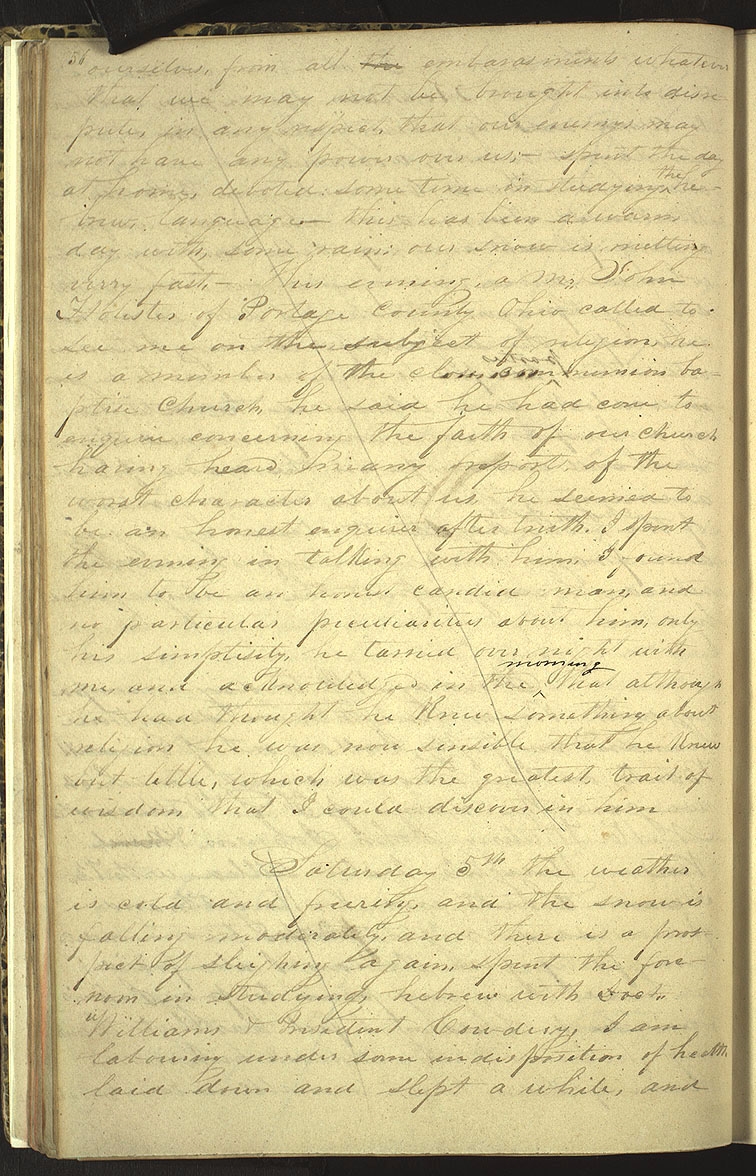 56 ourselves, from all the embarasments whatever
that we may not be brought into disre
pute, in any respect, that our enemys may
not have any power over us;— spent the day
at home, devoted some time in studying the he-
brew language— this has been a warm
day with, some rain; our snow is melting
verry fast,— This evening, a Mr. John
Holister of Portage County Ohio called to
see me on the subject of religion, he
is a member of the close communion ba-
ptise Church, he said he had come to
enquire concerning the faith of our church
having heard many reports of the
worst character about us, he seemed to
be an honest enquirer after truth. I spent
the evening in talking with him, I found
him to be an honest candid man, and
no particular peculiarities about him, only
his simplisity, he tarried over night with
me, and acknowledged in the morning that although
he had thought he knew something about
religion he was now sensible that he knew
but little, which was the greatest, trait of
wisdom that I could discover in him
Saturday 5th the weather
is cold and freezing, and the snow is
falling moderately, and there is a pros-
pect of sleighing again, spent the fore-
noon in studying, hebrew with doct.
Williams & President Cowdery, I am
labouring under some indisposition of health
laid down and slept a while, and